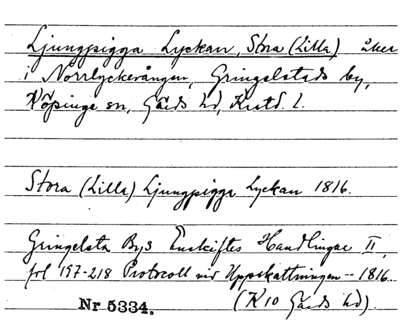 Ljungpigga Lyckan, Stora (Lilla) åker
i Norrlyckevången, Gringelstads by,
Köpinge sn, Gärds hd, Krstd. l.
Stora (Lilla) Ljungpigga Lyckan 1816.
Gringelsta Bys Enskiftes Handlingar II,
fol 197-218 Protocoll vid Uppskattningen - 1816.
(K10 Gärds hd).
Nr 5334.